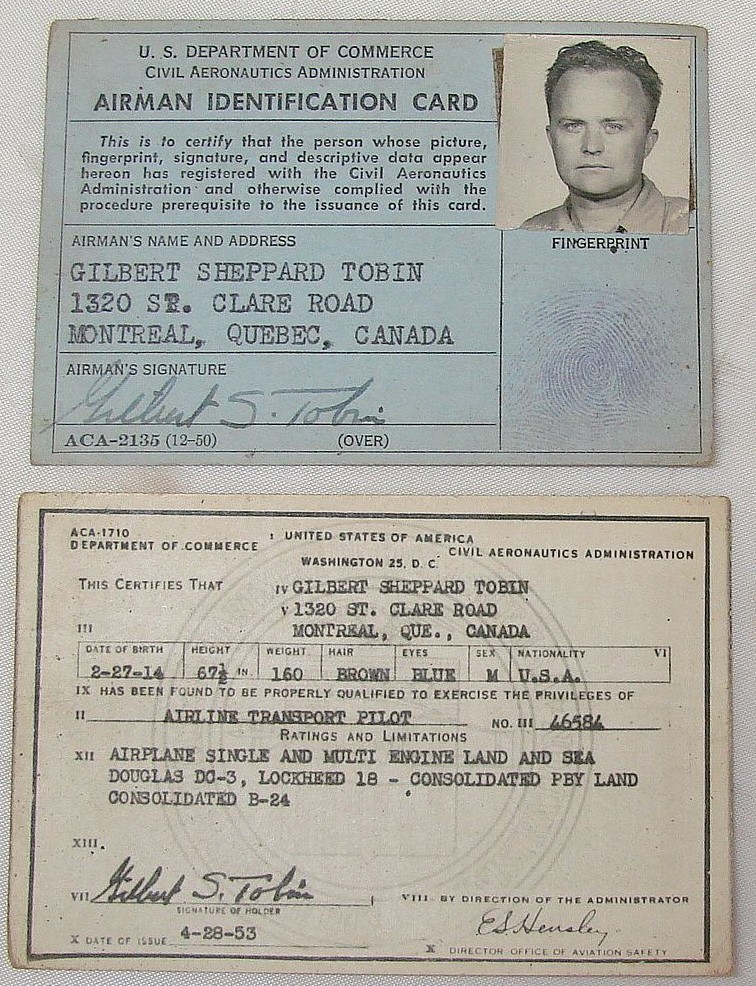 U. S. DEPARTMENT OF COMMERCE
CIVIL AERONAUTICS ADMINISTRATION
AIRMAN IDENTIFICATION CARD
This is to certify that the person whose picture,
fingerprint, signature, and descriptive data appear
hereon has registered with the Civil Aeronautics
Administration and otherwise complied with the
procedure prerequisite to the issuance of this card.
AIRMAN'S NAME AND ADDRESS
FINGERPRINT
GILBERT SHEPPARD TOBIN
1320 ST. CLARE ROAD
MONTREAL, QUEBEC, CANADA
AIRMAN'S SIGNATURE
Gilbert S. Tobin
ACA-2135 (12-50) (OVER)
ACA-1710
UNITED STATES OF AMERICA
DEPARTMENT OF COMMERCE CIVIL AERONAUTICS ADMINISTRATION
WASHINGTON 25, D. C.
THIS CERTIFIES THAT IV GILBERT SHEPPARD TOBIN
V 1320 ST. CLARE ROAD
III MONTREAL, QUE., CANADA
DATE OF BIRTH HEIGHT WEIGHT HAIR EYES SEX NATIONALITY VI
2-27-14 67½ IN 160 BROWN BLUE M U.S.A.
IX HAS BEEN FOUND TO BE PROPERLY QUALIFIED TO EXERCISE THE PRIVILEGES OF
II AIRLINE TRANSPORT PILOT NO. III 46584
RATINGS AND LIMITATIONS
XII AIRPLANE SINGLE AND MULTI ENGINE LAND AND SEA
DOUGLAS DC-3, LOCKHEED 18 - CONSOLIDATED PBY LAND
CONSOLIDATED B-24
XIII.
VII Gilbert S. Tobin VIII BY DIRECTION OF THE ADMINISTRATOR
SIGNATURE OF HOLDER
E S Hensley
X DATE OF ISSUE 4-28-53
X DIRECTOR OFFICE OF AVIATION SAFETY